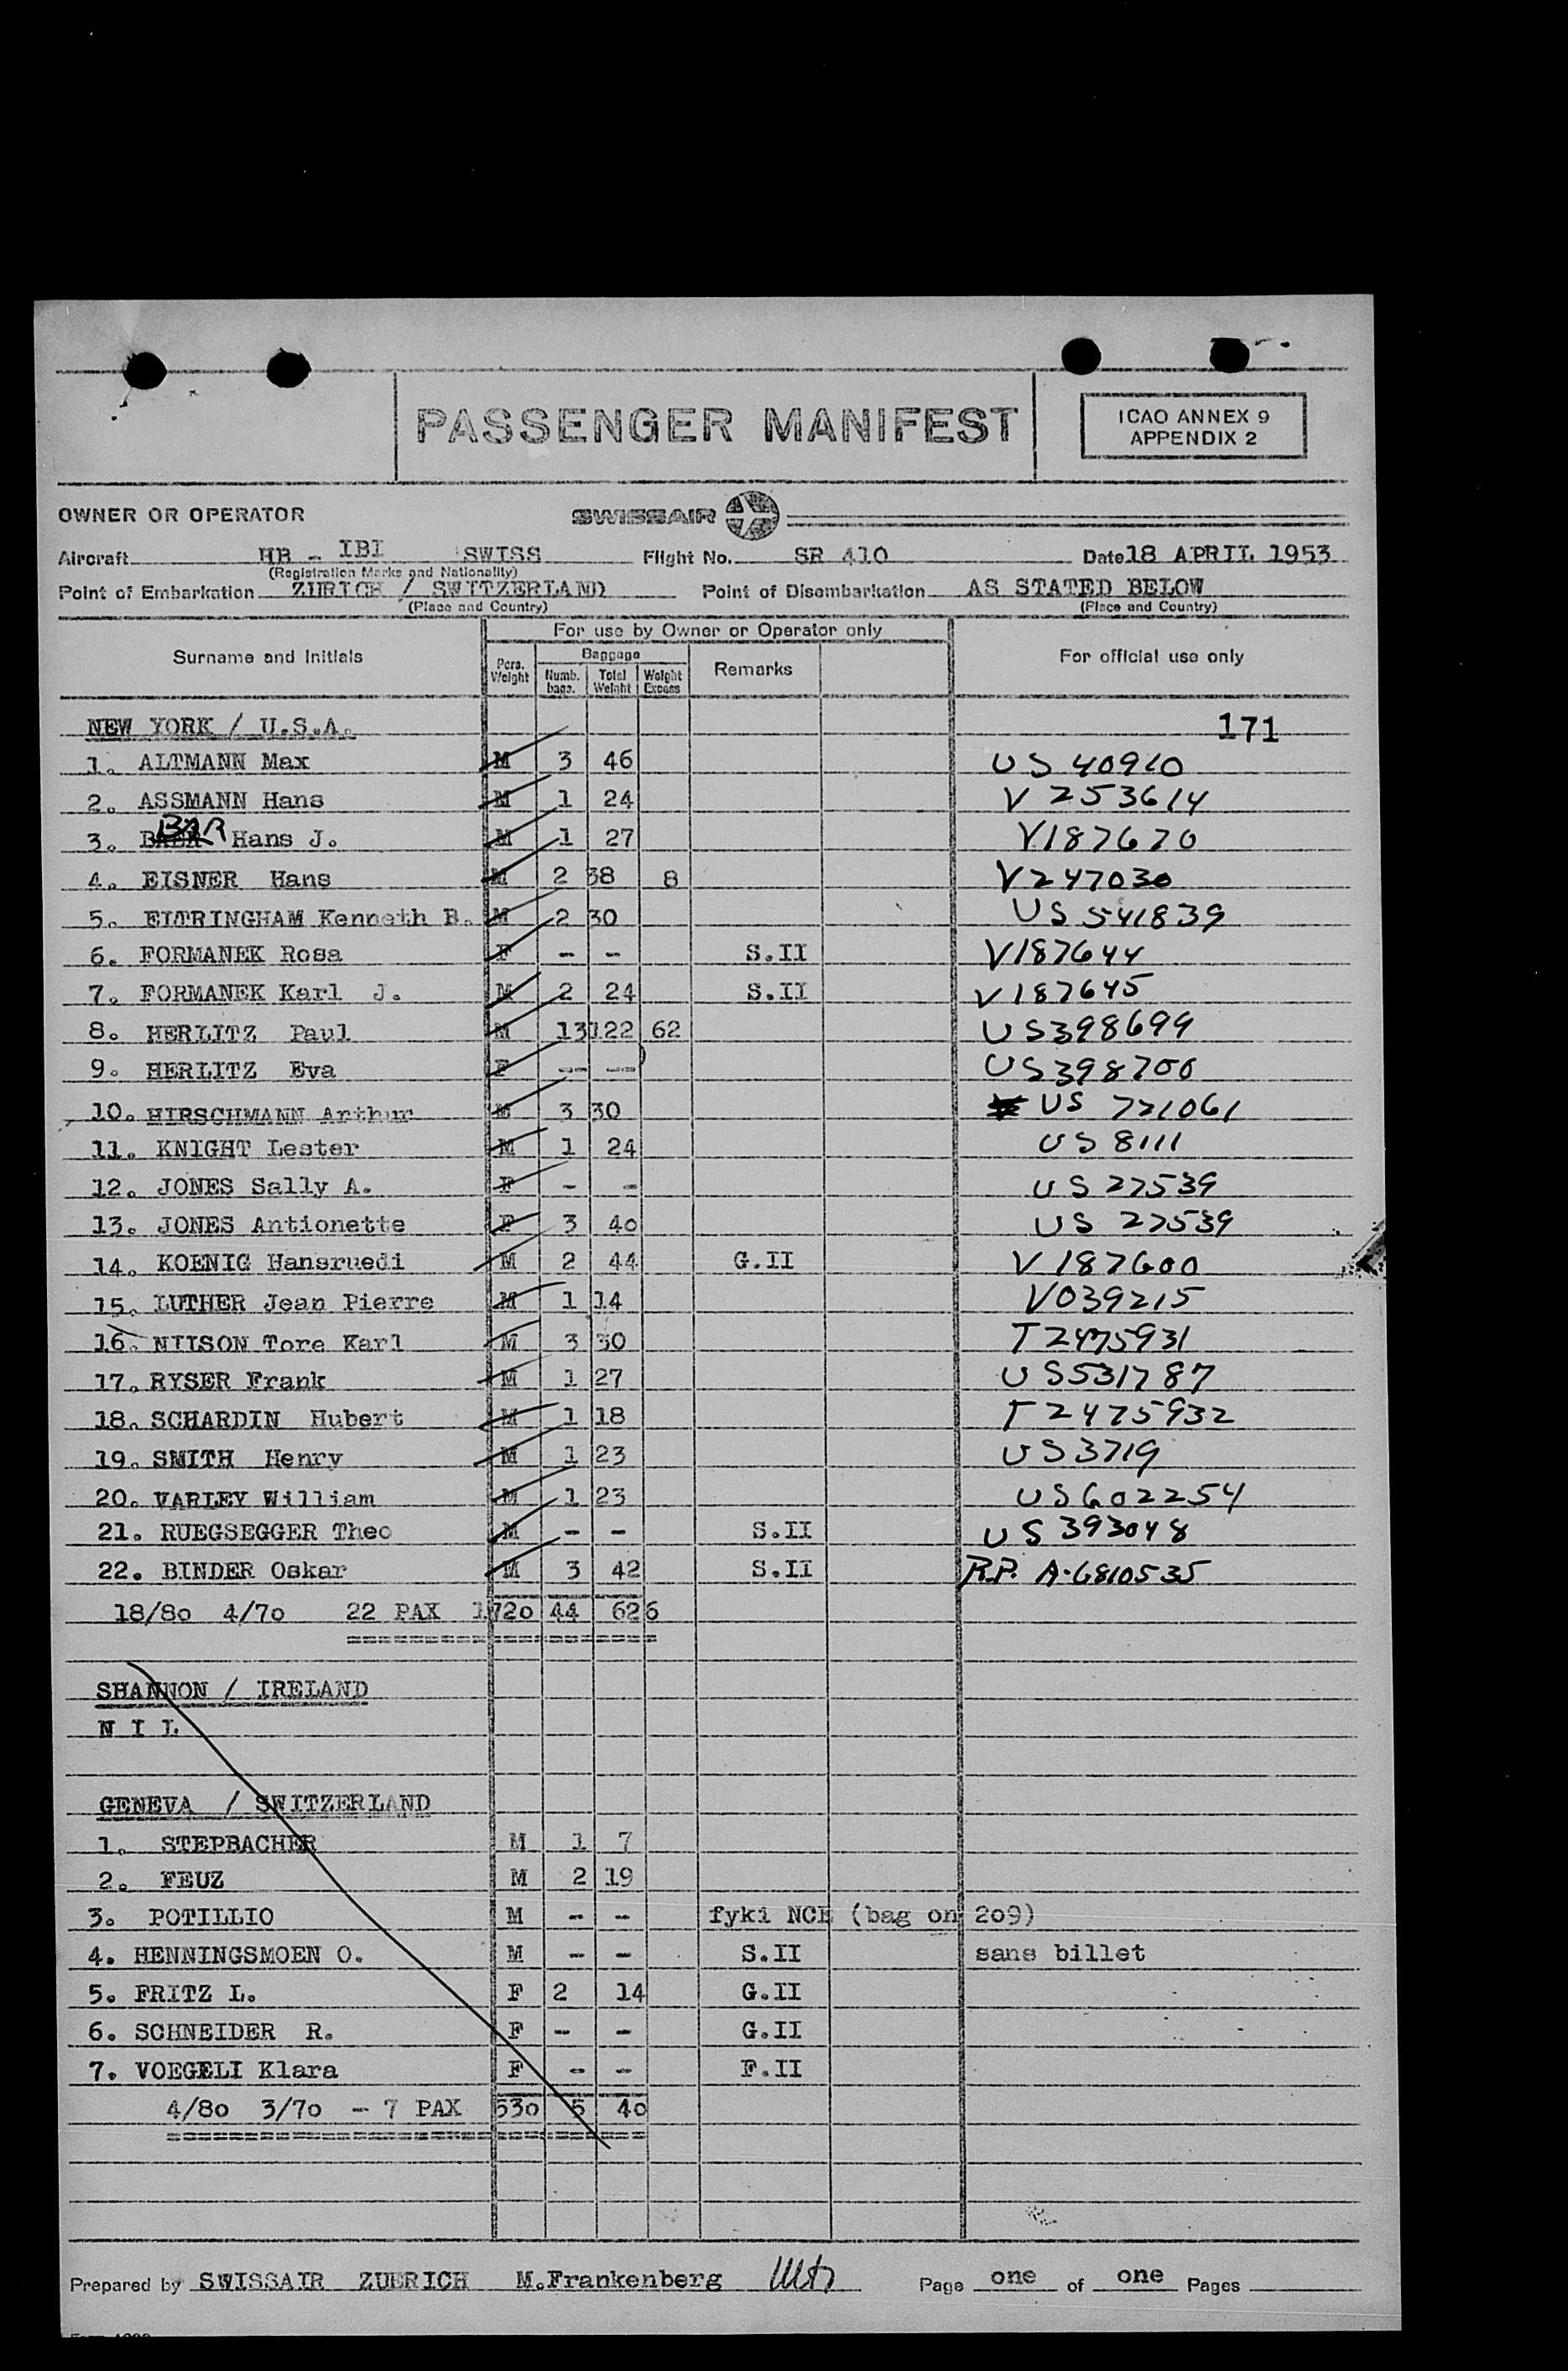 PASSENGER MANIFEST
ICAO ANNEX 9
APPENDIX 2
OWNER OR OPERATOR SWISSAIR
Aircraft HB - IBI SWISS Flight No. SR 410 Date 18 APRIL 1953
(Registration Marks and Nationality)
Point of Embarkation ZURICH / SWITZERLAND Point of Disembarkation AS STATED BELOW
(Place and Country) (Place and Country)
For use by Owner or Operator only
Surname and Initials Pers. Weight Baggage Numb. bags. Total Weight Weight Excess Remarks For official use only
NEW YORK / U.S.A. 171
1. ALTMANN Max M 3 46 US 40910
2. ASSMANN Hans M 1 24 V 253614
3. BAR Hans J. M 1 27 V187670
4. EISNER Hans M 2 38 8 V247030
5. EITRINGHAM Kenneth B. M 2 30 US 541839
6. FORMANEK Rosa F - - S.II V187644
7. FORMANEK Karl J. M 2 24 S.II V187645
8. HERLITZ Paul M 13 122 62 US398699
9. HERLITZ Eva F -- -- US398700
10. HIRSCHMANN Arthur M 3 30 US 721061
11. KNIGHT Lester M 1 24 US 8111
12. JONES Sally A. F - - US 27539
13. JONES Antionette F 3 40 US 27539
14. KOENIG Hansruedi M 2 44 G.II V 187600
15. LUTHER Jean Pierre M 1 14 V039215
16. NILSON Tore Karl M 3 30 T2475931
17. RYSER Frank M 1 27 US531787
18. SCHARDIN Hubert M 1 18 T2475932
19. SMITH Henry M 1 23 US3719
20. VARLEY William M 1 23 US602254
21. RUEGSEGGER Theo M - - S.II US 393048
22. BINDER Oskar M 3 42 S.II R.P. A-6810535
18/80 4/70 22 PAX 1720 44 626
====================
SHANNON / IRELAND
N I L
GENEVA / SWITZERLAND
1. STEPBACHER M 1 7
2. FEUZ M 2 19
3. POTILLIO M - - fyki NCE (bag on 209)
4. HENNINGSMOEN O. M - - S.II sans billet
5. FRITZ L. F 2 14 G.II
6. SCHNEIDER R. F - - G.II
7. VOEGELI Klara F - - F.II
4/80 3/70 - 7 PAX 530 5 40
==============================
Prepared by SWISSAIR ZUERICH M.Frankenberg Page one of one Pages